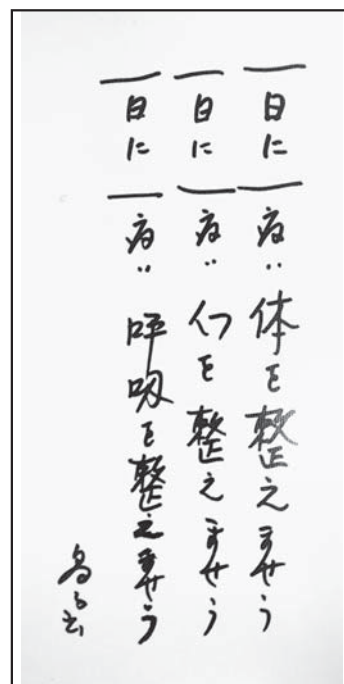 一日に一度は体を整えませう
一日に一度は心を整えませう
一日に一度は呼吸を整えませう